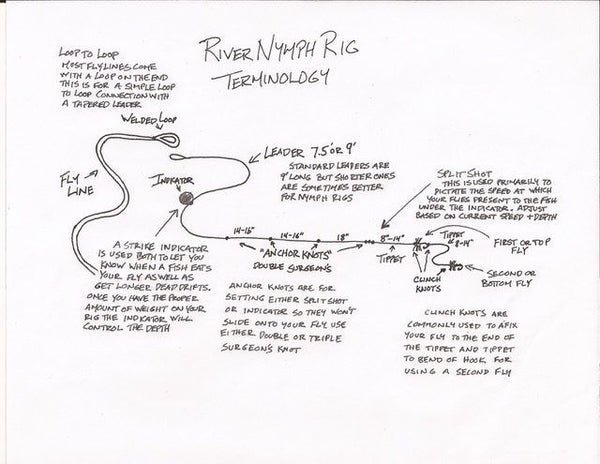 RIVER NYMPH RIG
TERMINOLOGY
LOOP TO LOOP
MOST FLY LINES COME
WITH A LOOP ON THE END
THIS IS FOR A SIMPLE LOOP
TO LOOP CONNECTION WITH
A TAPERED LEADER
WELDED LOOP
FLY
LINE
INDIKATOR
LEADER 7.5' OR 9'
STANDARD LEADERS ARE
9' LONG BUT SHORTER ONES
ARE SOMETIMES BETTER
FOR NYMPH RIGS
SPLIT SHOT
THIS IS USED PRIMARILY TO
DICTATE THE SPEED AT WHICH
YOUR FLIES PRESENT TO THE FISH
UNDER THE INDICATOR. ADJUST
BASED ON CURRENT SPEED + DEPTH
14-16"
14-16"
18"
8-14"
TIPPET
TIPPET
8-14"
FIRST OR TOP
FLY
"ANCHOR KNOTS"
DOUBLE SURGEONS
CLINCH
KNOTS
SECOND OR
BOTTOM FLY
A STRIKE INDICATOR
IS USED BOTH TO LET YOU
KNOW WHEN A FISH EATS
YOUR FLY AS WELL AS
GET LONGER DEAD DRIFTS.
ONCE YOU HAVE THE PROPER
AMOUNT OF WEIGHT ON YOUR
RIG THE INDIKATOR WILL
CONTROL THE DEPTH
ANCHOR KNOTS ARE FOR
SETTING EITHER SPLIT SHOT
OR INDICATOR SO THEY WON'T
SLIDE ONTO YOUR FLY USE
EITHER DOUBLE OR TRIPLE
SURGEON'S KNOT
CLINCH KNOTS ARE
COMMONLY USED TO AFIX
YOUR FLY TO THE END OF
THE TIPPET AND TIPPET
TO BEND OF HOOK FOR
USING A SECOND FLY